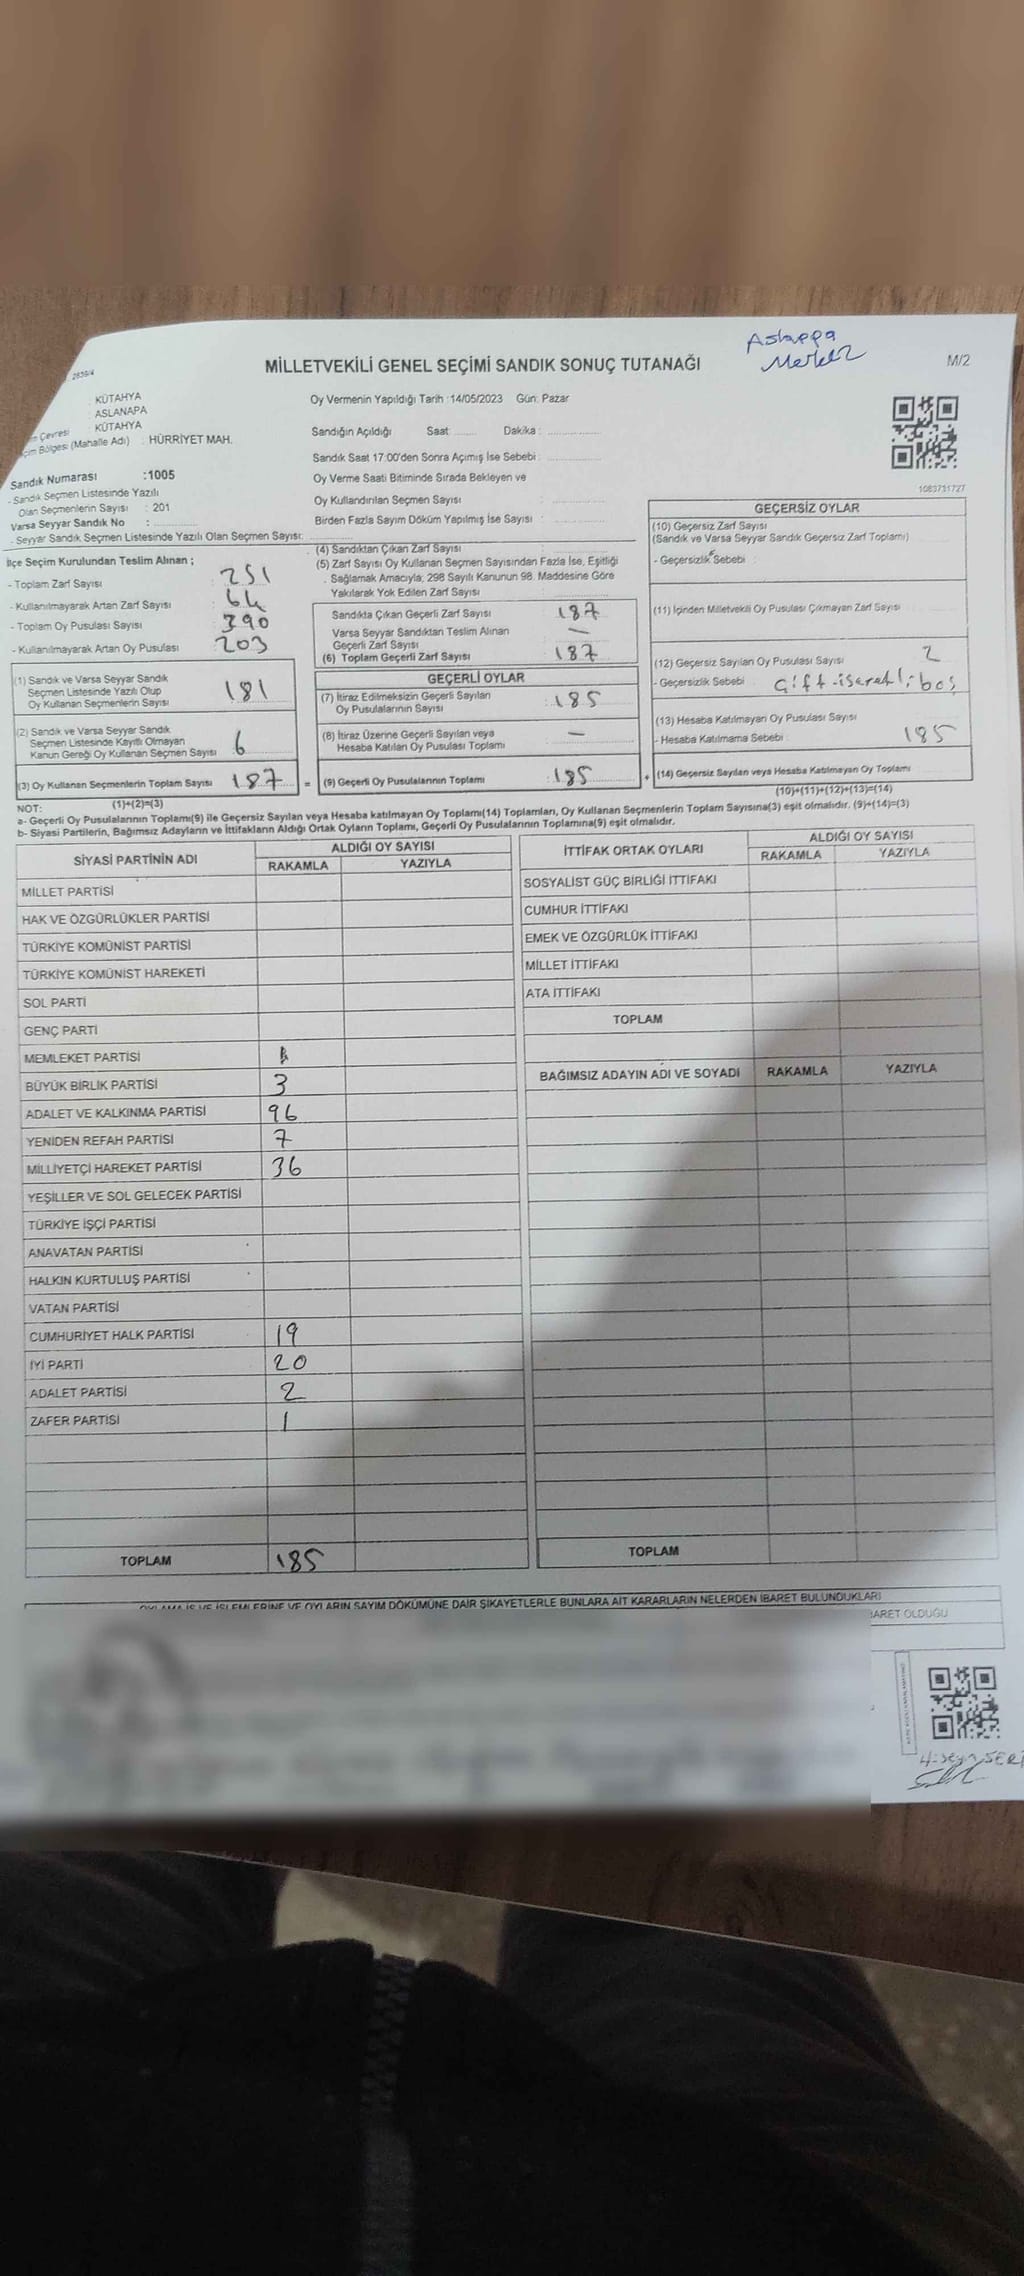 Aslanapa
Merkez
2839/4
MİLLETVEKİLİ GENEL SEÇİMİ SANDIK SONUÇ TUTANAĞI
M/2
KÜTAHYA
ASLANAPA
Çevresi : KÜTAHYA
Bölgesi (Mahalle Adı) : HÜRRİYET MAH.
Sandık Numarası :1005
- Sandık Seçmen Listesinde Yazılı
Olan Seçmenlerin Sayısı : 201
Varsa Seyyar Sandık No :
- Seyyar Sandık Seçmen Listesinde Yazılı Olan Seçmen Sayısı:
Oy Vermenin Yapıldığı Tarih :14/05/2023 Gün: Pazar
Sandığın Açıldığı Saat Dakika :
Sandık Saat 17:00'den Sonra Açımış İse Sebebi :
Oy Verme Saati Bitiminde Sırada Bekleyen ve
Oy Kullandırılan Seçmen Sayısı :
Birden Fazla Sayım Döküm Yapılmış İse Sayısı :
1083731727
İlçe Seçim Kurulundan Teslim Alınan ;
- Toplam Zarf Sayısı : 251
- Kullanılmayarak Artan Zarf Sayısı : 64
- Toplam Oy Pusulası Sayısı : 390
- Kullanılmayarak Artan Oy Pusulası : 203
(1) Sandık ve Varsa Seyyar Sandık
Seçmen Listesinde Yazılı Olup
Oy Kullanan Seçmenlerin Sayısı : 181
(2) Sandık ve Varsa Seyyar Sandık
Seçmen Listesinde Kayıtlı Olmayan
Kanun Gereği Oy Kullanan Seçmen Sayısı : 6
(3) Oy Kullanan Seçmenlerin Toplam Sayısı : 187 =
(1)+(2)=(3)
(4) Sandıktan Çıkan Zarf Sayısı :
(5) Zarf Sayısı Oy Kullanan Seçmen Sayısından Fazla İse, Eşitliği
Sağlamak Amacıyla, 298 Sayılı Kanunun 98. Maddesine Göre
Yakılarak Yok Edilen Zarf Sayısı
Sandıkta Çıkan Geçerli Zarf Sayısı : 187
Varsa Seyyar Sandıktan Teslim Alınan
Geçerli Zarf Sayısı : —
(6) Toplam Geçerli Zarf Sayısı : 187
GEÇERLİ OYLAR
(7) İtiraz Edilmeksizin Geçerli Sayılan
Oy Pusulalarının Sayısı : 185
(8) İtiraz Üzerine Geçerli Sayılan veya
Hesaba Katılan Oy Pusulası Toplamı : —
(9) Geçerli Oy Pusulalarının Toplamı : 185 +
GEÇERSİZ OYLAR
(10) Geçersiz Zarf Sayısı
(Sandık ve Varsa Seyyar Sandık Geçersiz Zarf Toplamı)
- Geçersizlik Sebebi :
(11) İçinden Milletvekili Oy Pusulası Çıkmayan Zarf Sayısı
(12) Geçersiz Sayılan Oy Pusulası Sayısı 2
- Geçersizlik Sebebi : Çift-işaretli boş
(13) Hesaba Katılmayan Oy Pusulası Sayısı
- Hesaba Katılmama Sebebi : 185
(14) Geçersiz Sayılan veya Hesaba Katılmayan Oy Toplamı :
(10)+(11)+(12)+(13)=(14)
NOT:
a- Geçerli Oy Pusulalarının Toplamı(9) ile Geçersiz Sayılan veya Hesaba katılmayan Oy Toplamı(14) Toplamları, Oy Kullanan Seçmenlerin Toplam Sayısına(3) eşit olmalıdır. (9)+(14)=(3)
b- Siyasi Partilerin, Bağımsız Adayların ve İttifakların Aldığı Ortak Oyların Toplamı, Geçerli Oy Pusulalarının Toplamına(9) eşit olmalıdır.
SİYASİ PARTİNİN ADI ALDIĞI OY SAYISI
RAKAMLA YAZIYLA
MİLLET PARTİSİ
HAK VE ÖZGÜRLÜKLER PARTİSİ
TÜRKİYE KOMÜNİST PARTİSİ
TÜRKİYE KOMÜNİST HAREKETİ
SOL PARTİ
GENÇ PARTİ
MEMLEKET PARTİSİ
BÜYÜK BİRLİK PARTİSİ 3
ADALET VE KALKINMA PARTİSİ 96
YENİDEN REFAH PARTİSİ 7
MİLLİYETÇİ HAREKET PARTİSİ 36
YEŞİLLER VE SOL GELECEK PARTİSİ
TÜRKİYE İŞÇİ PARTİSİ
ANAVATAN PARTİSİ
HALKIN KURTULUŞ PARTİSİ
VATAN PARTİSİ
CUMHURİYET HALK PARTİSİ 19
İYİ PARTİ 20
ADALET PARTİSİ 2
ZAFER PARTİSİ 1
TOPLAM 185
İTTİFAK ORTAK OYLARI ALDIĞI OY SAYISI
RAKAMLA YAZIYLA
SOSYALİST GÜÇ BİRLİĞİ İTTİFAKI
CUMHUR İTTİFAKI
EMEK VE ÖZGÜRLÜK İTTİFAKI
MİLLET İTTİFAKI
ATA İTTİFAKI
TOPLAM
BAĞIMSIZ ADAYIN ADI VE SOYADI RAKAMLA YAZIYLA
TOPLAM
OYLAMA İŞ VE İŞLEMLERİNE VE OYLARIN SAYIM DÖKÜMÜNE DAİR ŞİKAYETLERLE BUNLARA AİT KARARLARIN NELERDEN İBARET BULUNDUKLARI
İBARET OLDUĞU